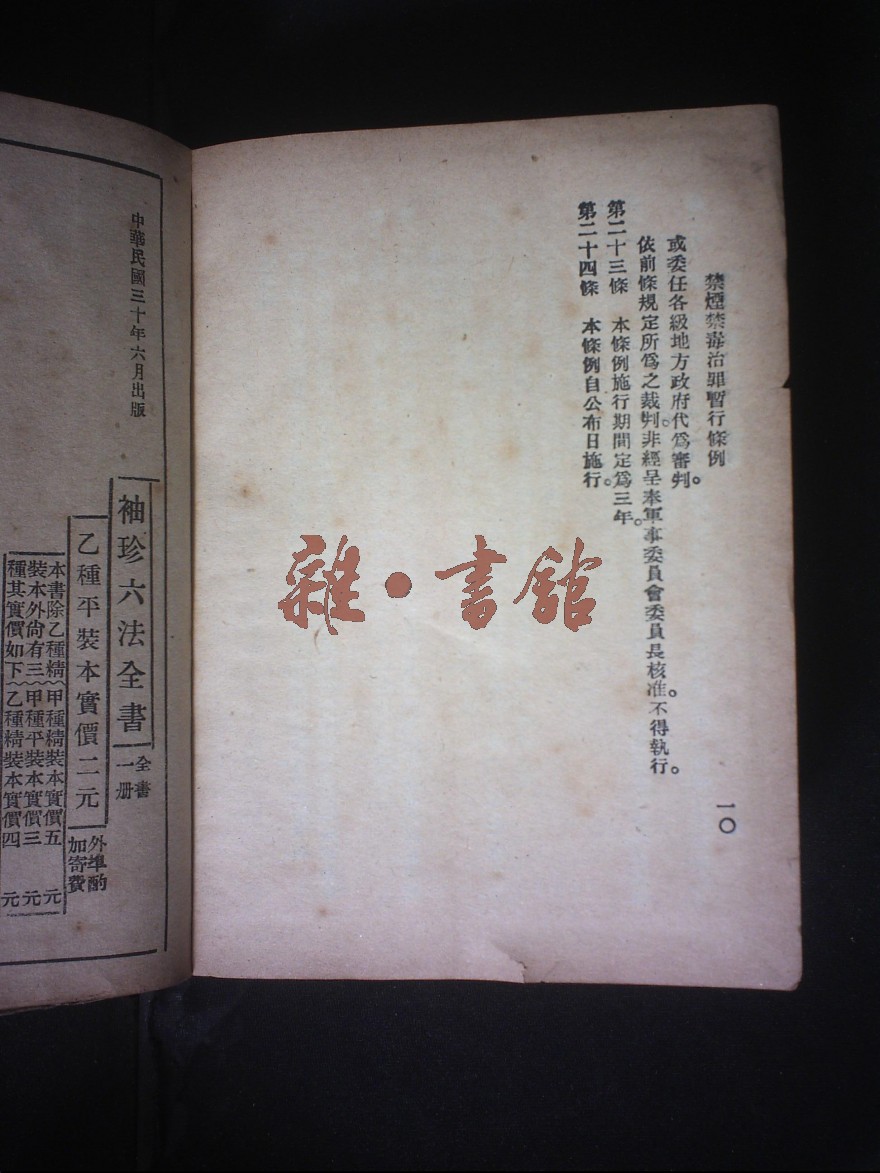 禁煙禁毒治罪暫行條例
或委任各級地方政府代爲審判。
依前條規定所爲之裁判。非經呈奉軍事委員會委員長核准。不得執行。
第二十三條　本條例施行期間定爲三年。
第二十四條　本條例自公布日施行。
一〇
雜·書館
中華民國三十年六月出版
袖珍六法全書
全書
一册
乙種平裝本實價二元
外埠酌
加寄費
本書除乙種精
裝本外尙有三
種其實價如下
甲種精裝本實價五元
甲種平裝本實價三元
乙種精裝本實價四元